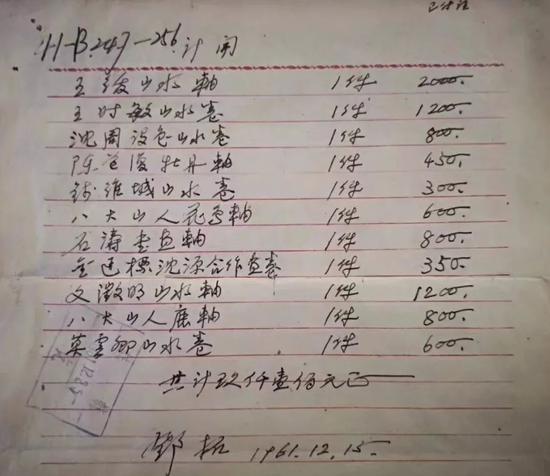 H-B.247-256. 计开
王绂山水軸 1件 2000.
王时敏山水卷 1件 1200.
沈周设色山水卷 1件 800.
陈道復牡丹軸 1件 450.
钱維城山水卷 1件 300.
八大山人花鸟軸 1件 600.
石濤書画軸 1件 800.
金廷標沈源合作画卷 1件 350.
文徵明山水軸 1件 1200.
八大山人鹿軸 1件 800.
莫雲卿山水卷 1件 600.
共计玖仟壹佰元正
鄧拓 1961.12.15.